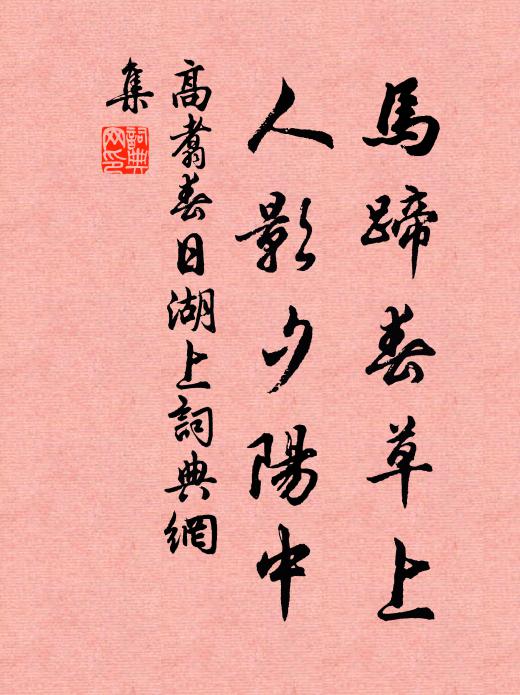 馬蹄春草上
人影夕陽中
高翥春日湖上詞典網
集
詞典網印